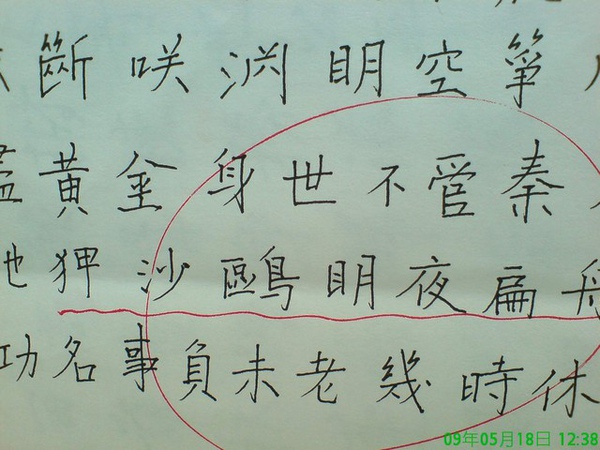 斷咲渊明空箏
黄金身世不管秦
地狎沙鷗明夜扁舟
功名事負未老幾時休
09年05月18日 12:38